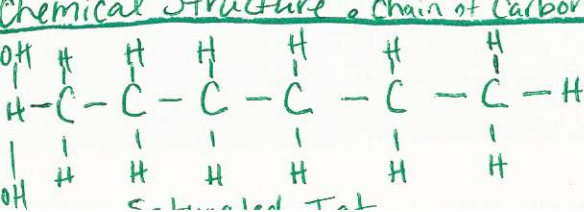 Chemical Structure • Chain of Carbon
OH H H H H H H
H-C-C-C-C-C-C-H
H H H H H H
OH
Saturated Fat